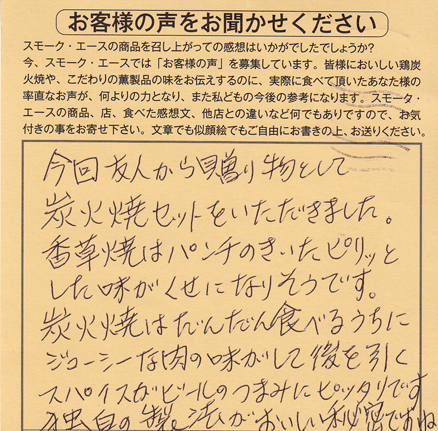 お客様の声をお聞かせください
スモーク・エースの商品を召し上がっての感想はいかがでしたでしょうか?
今、スモーク・エースでは「お客様の声」を募集しています。皆様においしい鶏炭
火焼や、こだわりの薫製品の味をお伝えするのに、実際に食べて頂いたあなた様の
率直なお声が、何よりの力となり、また私どもの今後の参考になります。スモーク・
エースの商品、店、食べた感想文、他店との違いなど何でもありですので、お気
付きの事をお寄せ下さい。文章でも似顔絵でもご自由にお書きの上、お送りください。
今回友人から贈り物として
炭火焼セットをいただきました。
香草焼はパンチのきいたピリッと
した味がくせになりそうです。
炭火焼はだんだん食べるうちに
ジューシーな肉の味がして後を引く
スパイスがビールのつまみにピッタリです
独自の製法がおいしい秘密ですね